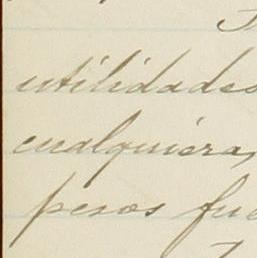 utilidades
cualquiera,
pesos fue